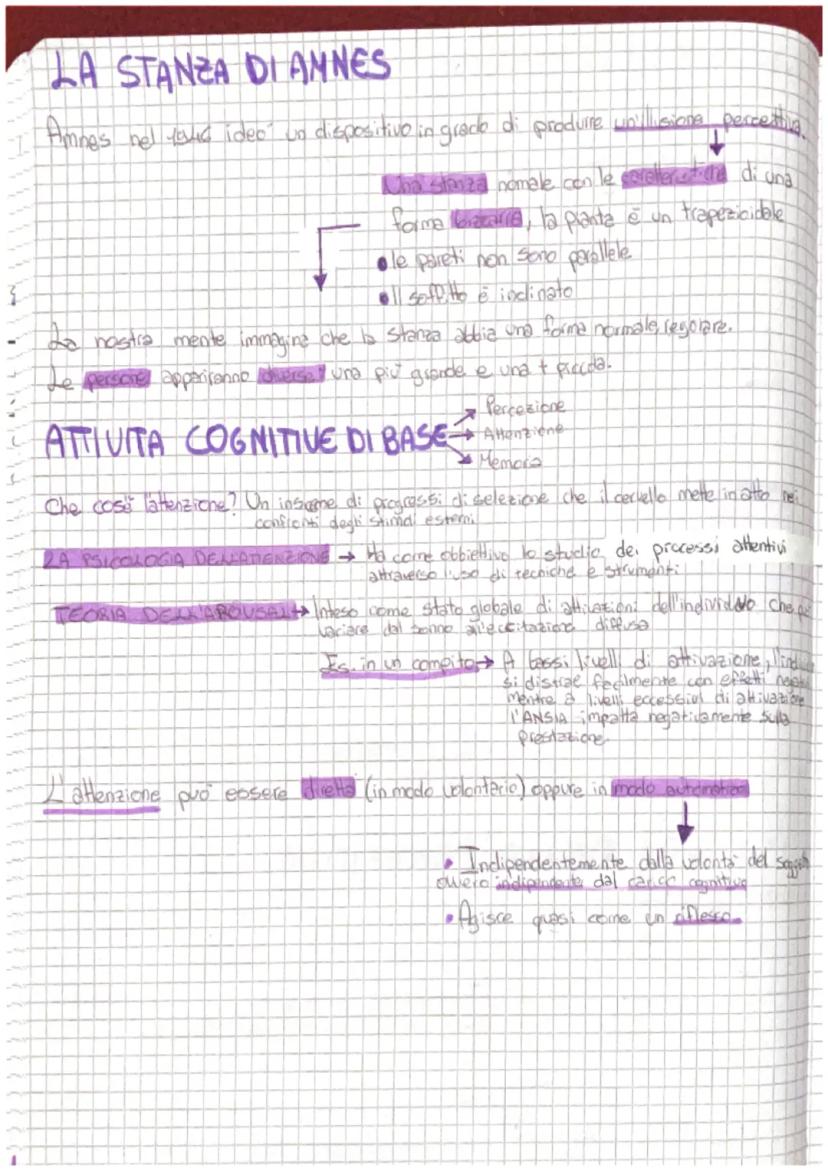 LA STANZA DI AMNES
Amnes nel 1946 ideo' un dispositivo in grado di produrre un'illusione percettiva.
Una stanza normale con le caratteristiche di una
forma bizzarra, la pianta è un trapezicidale
• le pareti non sono parallele
• Il soffitto è inclinato
La nostra mente immagina che la stanza abbia una forma normale, regolare.
Le persone appariranno diverse: una più grande e una + piccola.
Percezione
ATTIVITA COGNITIVE DI BASE → Attenzione
Memoria
Che cos'è l'attenzione? Un insieme di progressi di selezione che il cervello mette in atto nei
confronti degli stimoli esterni
LA PSICOLOGIA DELL'ATTENZIONE → Ha come obbiettivo lo studio dei processi attentivi
attraverso l'uso di tecniche e strumenti.
TEORIA DELL'AROUSAL → Inteso come stato globale di attivazioni dell'individuo che può
variare dal sonno all'eccitazione diffusa
Es. in un compito → A bassi livelli di attivazione, l'indi
si distrae facilmente con effetti nega
mentre a livelli eccessivi di attivazione
l'ANSIA impatta negativamente sulla
prestazione.
L'attenzione può essere diretta (in modo volontario) oppure in modo automatico
• Indipendentemente dalla volontà del sogge
ovvero indipendente dal carico cognitivo
• Agisce quasi come un riflesso.